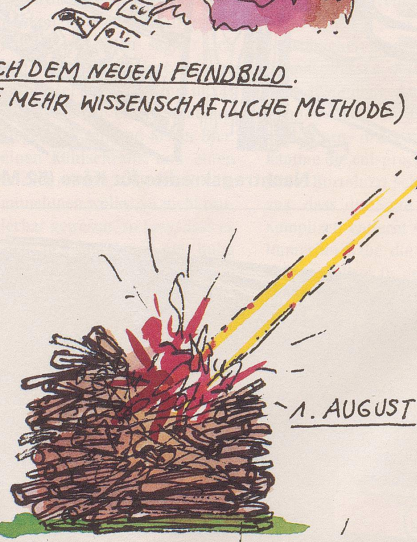 CH DEM NEUEN FEINDBILD.
E MEHR WISSENSCHAFTLICHE METHODE)
1. AUGUST